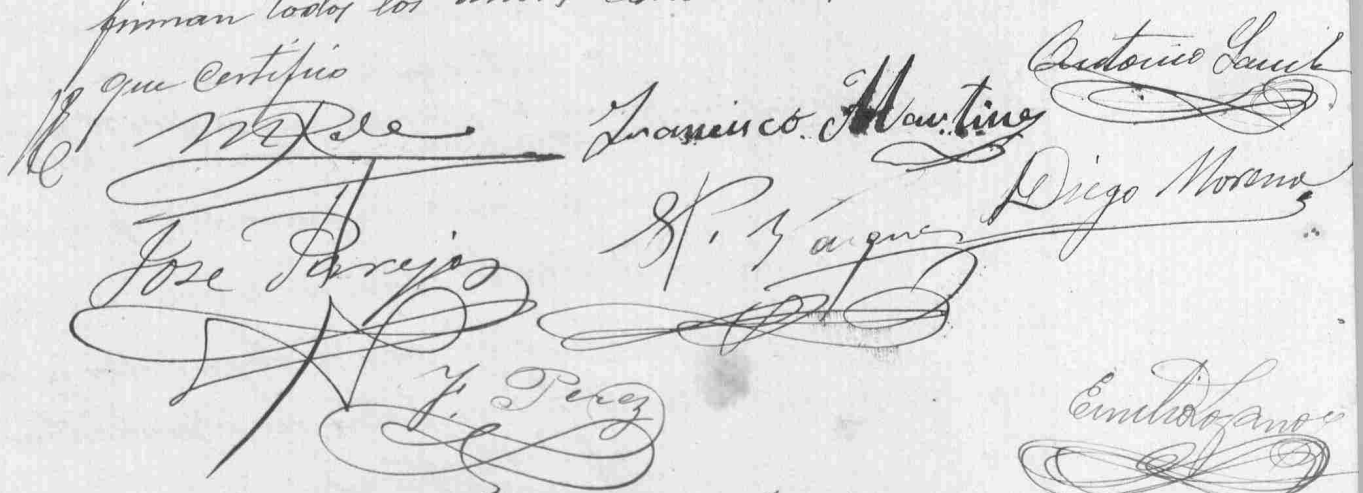 firman todos los
que Certifico
Antonio
Francisco Martinez
Diego Moreno
Jose Parejo
P. Vázquez
F. Perez
Emilio Lozano